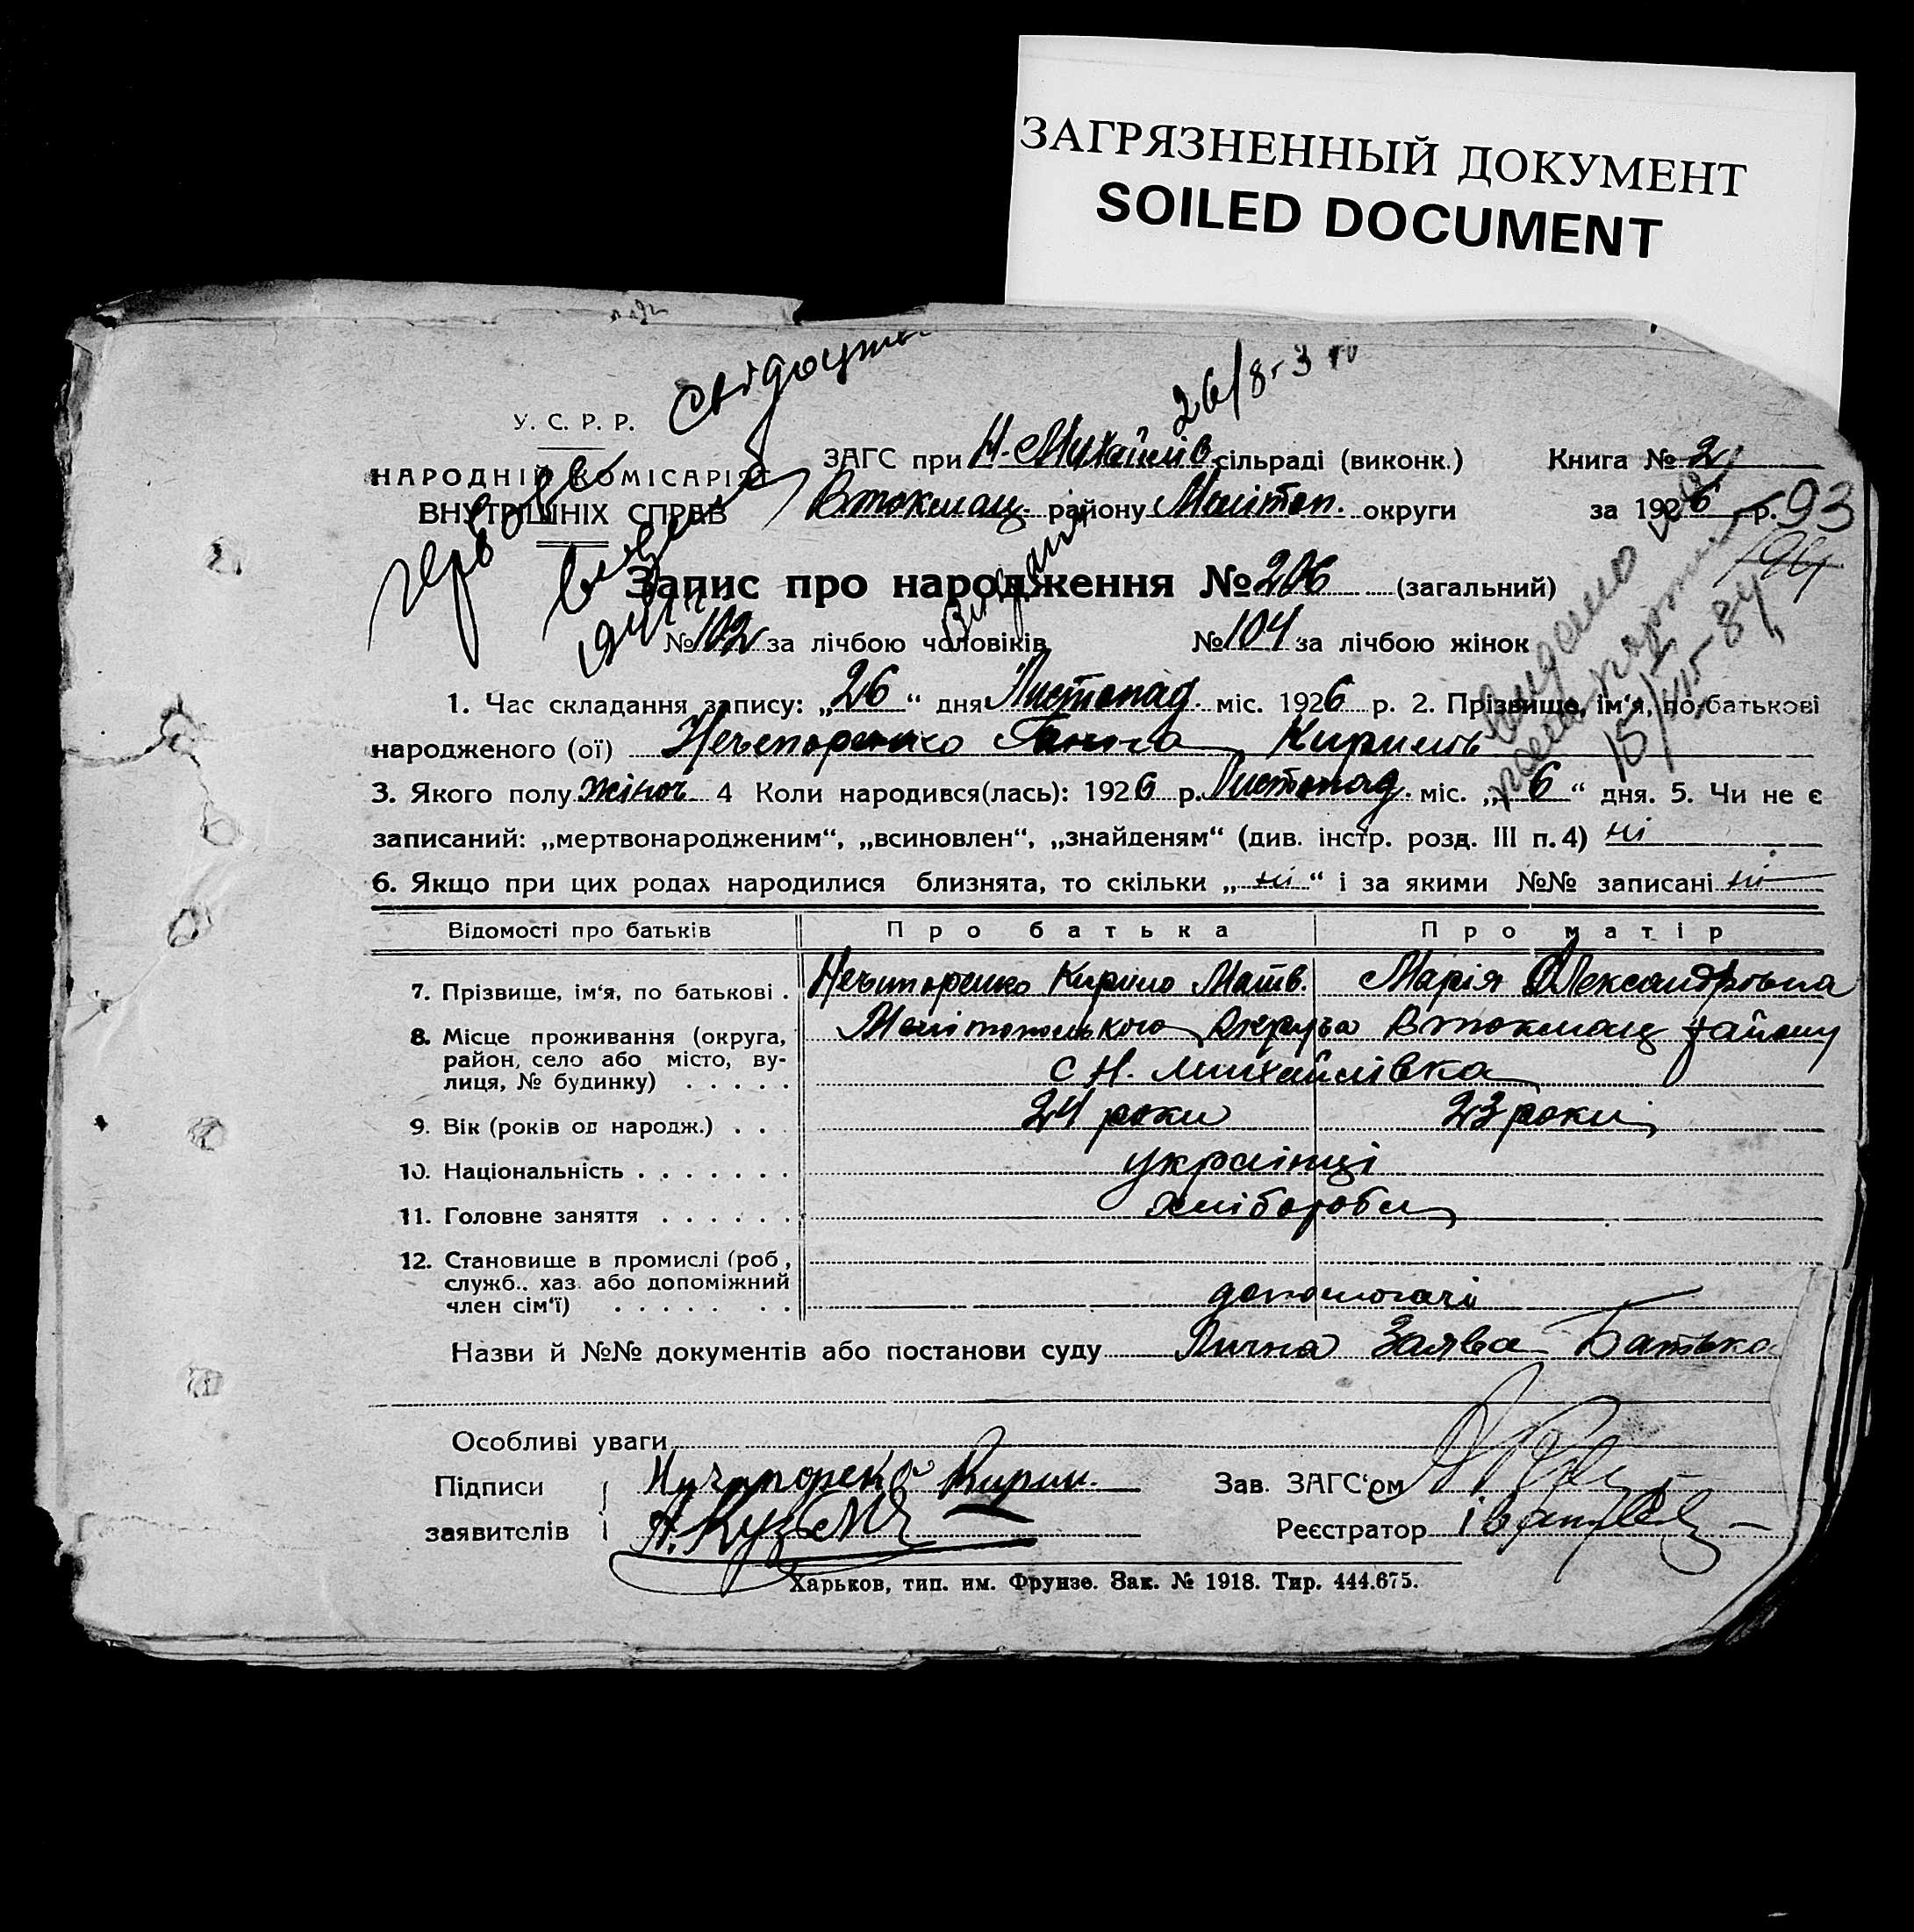 ЗАГРЯЗНЕННЫЙ ДОКУМЕНТ
SOILED DOCUMENT
26/8-3
У. С. Р. Р.
НАРОДНІЙ КОМІСАРІЯТ
ВНУТРІШНІХ СПРАВ
ЗАГС при Н. Михайлів сільраді (виконк.) Книга № 2
Втокмац. району Меліtоп. округи за 1926 р. 93
194
Запис про народження № 206 (загальний)
№ 102 за лічбою чоловіків № 104 за лічбою жінок
видано
15/XII-84
1. Час складання запису: „26“ дня Листопад. міс. 1926 р. 2. Прізвище, ім'я, по батькові
народженого (ої) Нечепоренко Ганна Кирилів
3. Якого полу жіноч 4 Коли народився(лась): 1926 р. Листопад. міс. „6“ дня. 5. Чи не є
записаний: „мертвонародженим“, „всиновлен“, „знайденям“ (див. інстр. розд. III п. 4) ні
6. Якщо при цих родах народилися близнята, то скільки „ні“ і за якими №№ записані ні
Відомості про батьків Про батька Про матір
7. Прізвище, ім'я, по батькові . Нечипоренко Кирило Матв. Марія Олександровна
8. Місце проживання (округа, район, село або місто, вулиця, № будинку) . . . . . Мелітополького Округа Втокмац району
с Н. Михайлівка
9. Вік (років од народж.) . . . 24 роки 23 роки
10. Національність . . . . . . . українці
11. Головне заняття . . . . . . хлібороби
12. Становище в промислі (роб, служб.. хаз. або допоміжний член сім'ї) . . . . . . . допомогачі
Назви й №№ документів або постанови суду Лична Заява Батька
Особливі уваги
Підписи Нучапоренко Кирил. Зав. ЗАГС'ом
заявителів А. Реєстратор
Харьков, тип. им. Фрунзе. Зак. № 1918. Тир. 444.675.